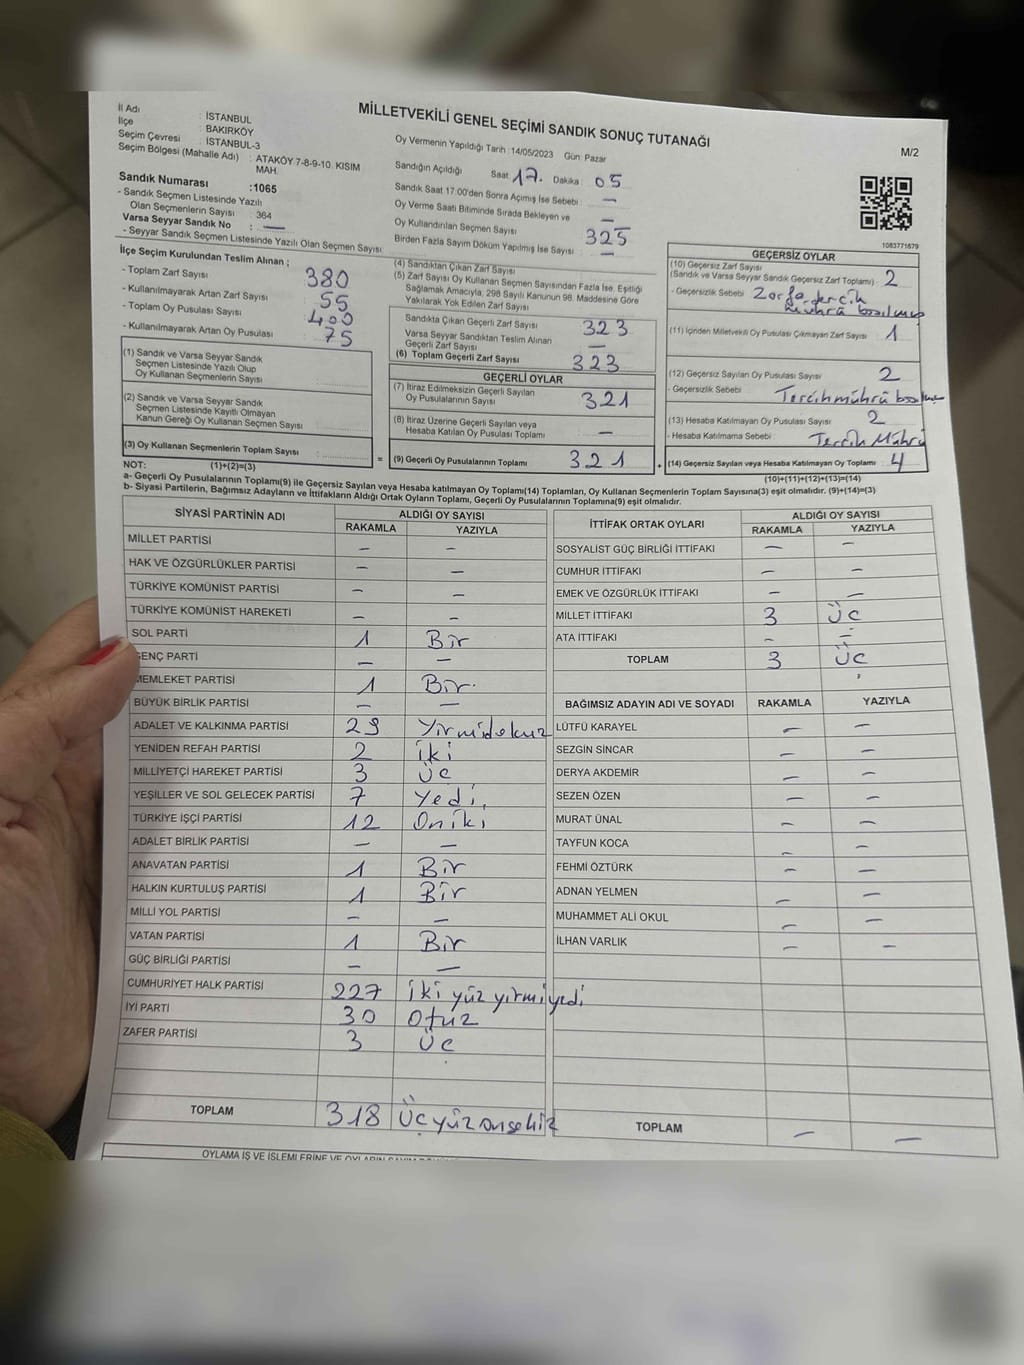 MİLLETVEKİLİ GENEL SEÇİMİ SANDIK SONUÇ TUTANAĞI
M/2
İl Adı : İSTANBUL
İlçe : BAKIRKÖY
Seçim Çevresi : İSTANBUL-3
Seçim Bölgesi (Mahalle Adı) : ATAKÖY 7-8-9-10. KISIM MAH.
Sandık Numarası :1065
- Sandık Seçmen Listesinde Yazılı
Olan Seçmenlerin Sayısı : 364
Varsa Seyyar Sandık No : —
- Seyyar Sandık Seçmen Listesinde Yazılı Olan Seçmen Sayısı
Oy Vermenin Yapıldığı Tarih :14/05/2023 Gün Pazar
Sandığın Açıldığı Saat 17. Dakika : 05
Sandık Saat 17:00'den Sonra Açımış İse Sebebi : —
Oy Verme Saati Bitiminde Sırada Bekleyen ve —
Oy Kullandırılan Seçmen Sayısı : 325
Birden Fazla Sayım Döküm Yapılmış İse Sayısı : —
1083771679
İlçe Seçim Kurulundan Teslim Alınan ;
- Toplam Zarf Sayısı 380
- Kullanılmayarak Artan Zarf Sayısı 55
- Toplam Oy Pusulası Sayısı 400
- Kullanılmayarak Artan Oy Pusulası 75
(1) Sandık ve Varsa Seyyar Sandık
Seçmen Listesinde Yazılı Olup
Oy Kullanan Seçmenlerin Sayısı
(2) Sandık ve Varsa Seyyar Sandık
Seçmen Listesinde Kayıtlı Olmayan
Kanun Gereği Oy Kullanan Seçmen Sayısı
(3) Oy Kullanan Seçmenlerin Toplam Sayısı :
(4) Sandıktan Çıkan Zarf Sayısı
(5) Zarf Sayısı Oy Kullanan Seçmen Sayısından Fazla İse, Eşitliği
Sağlamak Amacıyla, 298 Sayılı Kanunun 98. Maddesine Göre
Yakılarak Yok Edilen Zarf Sayısı
Sandıkta Çıkan Geçerli Zarf Sayısı : 323
Varsa Seyyar Sandıktan Teslim Alınan
Geçerli Zarf Sayısı : —
(6) Toplam Geçerli Zarf Sayısı 323
GEÇERLİ OYLAR
(7) İtiraz Edilmeksizin Geçerli Sayılan
Oy Pusulalarının Sayısı : 321
(8) İtiraz Üzerine Geçerli Sayılan veya
Hesaba Katılan Oy Pusulası Toplamı : —
= (9) Geçerli Oy Pusulalarının Toplamı 321
GEÇERSİZ OYLAR
(10) Geçersiz Zarf Sayısı
(Sandık ve Varsa Seyyar Sandık Geçersiz Zarf Toplamı) : 2
- Geçersizlik Sebebi : Zarfa tercih
mührü basılmış
(11) İçinden Milletvekili Oy Pusulası Çıkmayan Zarf Sayısı : 1
(12) Geçersiz Sayılan Oy Pusulası Sayısı : 2
- Geçersizlik Sebebi : Tercih mührü
(13) Hesaba Katılmayan Oy Pusulası Sayısı : 2
- Hesaba Katılmama Sebebi : Tercih Mührü
+ (14) Geçersiz Sayılan veya Hesaba Katılmayan Oy Toplamı : 4
NOT: (1)+(2)=(3)
(10)+(11)+(12)+(13)=(14)
a- Geçerli Oy Pusulalarının Toplamı(9) ile Geçersiz Sayılan veya Hesaba katılmayan Oy Toplamı(14) Toplamları, Oy Kullanan Seçmenlerin Toplam Sayısına(3) eşit olmalıdır. (9)+(14)=(3)
b- Siyasi Partilerin, Bağımsız Adayların ve İttifakların Aldığı Ortak Oyların Toplamı, Geçerli Oy Pusulalarının Toplamına(9) eşit olmalıdır.
SİYASİ PARTİNİN ADI ALDIĞI OY SAYISI
RAKAMLA YAZIYLA
MİLLET PARTİSİ — —
HAK VE ÖZGÜRLÜKLER PARTİSİ — —
TÜRKİYE KOMÜNİST PARTİSİ — —
TÜRKİYE KOMÜNİST HAREKETİ — —
SOL PARTİ 1 Bir
GENÇ PARTİ — —
MEMLEKET PARTİSİ 1 Bir.
BÜYÜK BİRLİK PARTİSİ — —
ADALET VE KALKINMA PARTİSİ 29 Yirmidokuz
YENİDEN REFAH PARTİSİ 2 İki
MİLLİYETÇİ HAREKET PARTİSİ 3 Üç
YEŞİLLER VE SOL GELECEK PARTİSİ 7 Yedi.
TÜRKİYE İŞÇİ PARTİSİ 12 Oniki
ADALET BİRLİK PARTİSİ — —
ANAVATAN PARTİSİ 1 Bir
HALKIN KURTULUŞ PARTİSİ 1 Bir
MİLLİ YOL PARTİSİ — —
VATAN PARTİSİ 1 Bir
GÜÇ BİRLİĞİ PARTİSİ — —
CUMHURİYET HALK PARTİSİ 227 İki yüz yirmi yedi
İYİ PARTİ 30 Otuz
ZAFER PARTİSİ 3 Üç
TOPLAM 318 Üçyüzonsekiz
İTTİFAK ORTAK OYLARI ALDIĞI OY SAYISI
RAKAMLA YAZIYLA
SOSYALİST GÜÇ BİRLİĞİ İTTİFAKI — —
CUMHUR İTTİFAKI — —
EMEK VE ÖZGÜRLÜK İTTİFAKI — —
MİLLET İTTİFAKI 3 Üç
ATA İTTİFAKI — —
TOPLAM 3 Üç
BAĞIMSIZ ADAYIN ADI VE SOYADI RAKAMLA YAZIYLA
LÜTFÜ KARAYEL — —
SEZGİN SİNCAR — —
DERYA AKDEMİR — —
SEZEN ÖZEN — —
MURAT ÜNAL — —
TAYFUN KOCA — —
FEHMİ ÖZTÜRK — —
ADNAN YELMEN — —
MUHAMMET ALİ OKUL — —
İLHAN VARLIK — —
TOPLAM — —